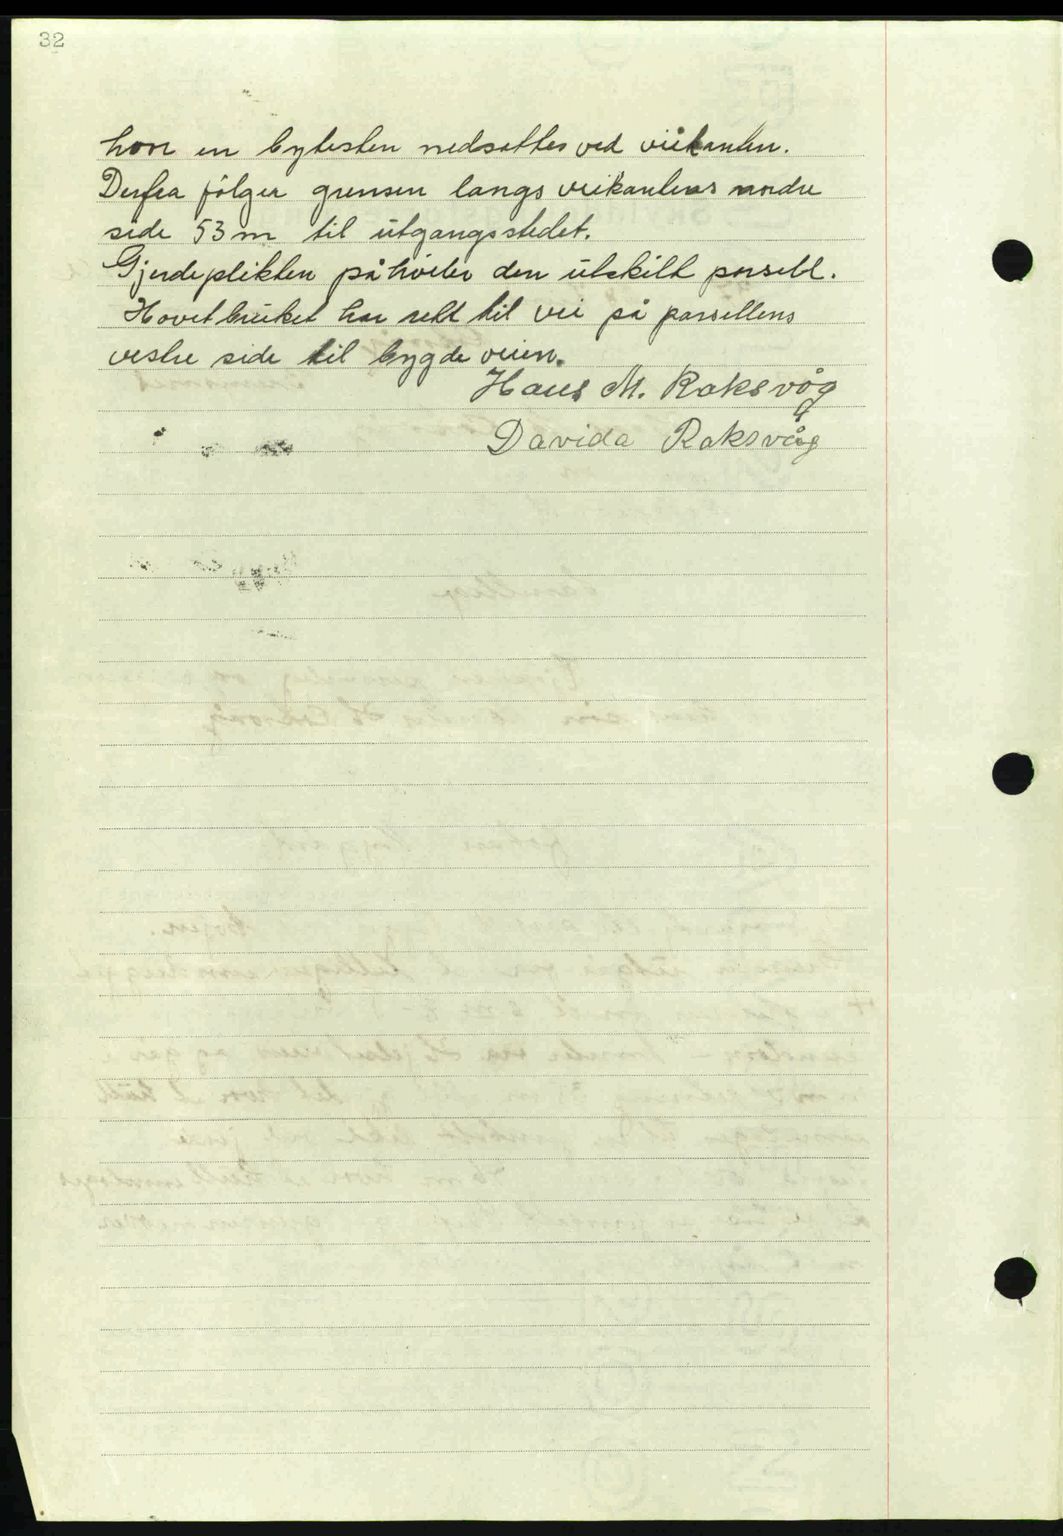 32
hvor en bytesten nedsattes ved veikanten.
Derfra følger grensen langs veikantens nordre
side 53 m til utgangsstedet.
Gjerdeplikten påhviler den utskilt parsell.
Hovetbruket har rett til vei på parsellens
vestre side til bygdeveien.
Hans M. Raksvåg
Davida Raksvåg